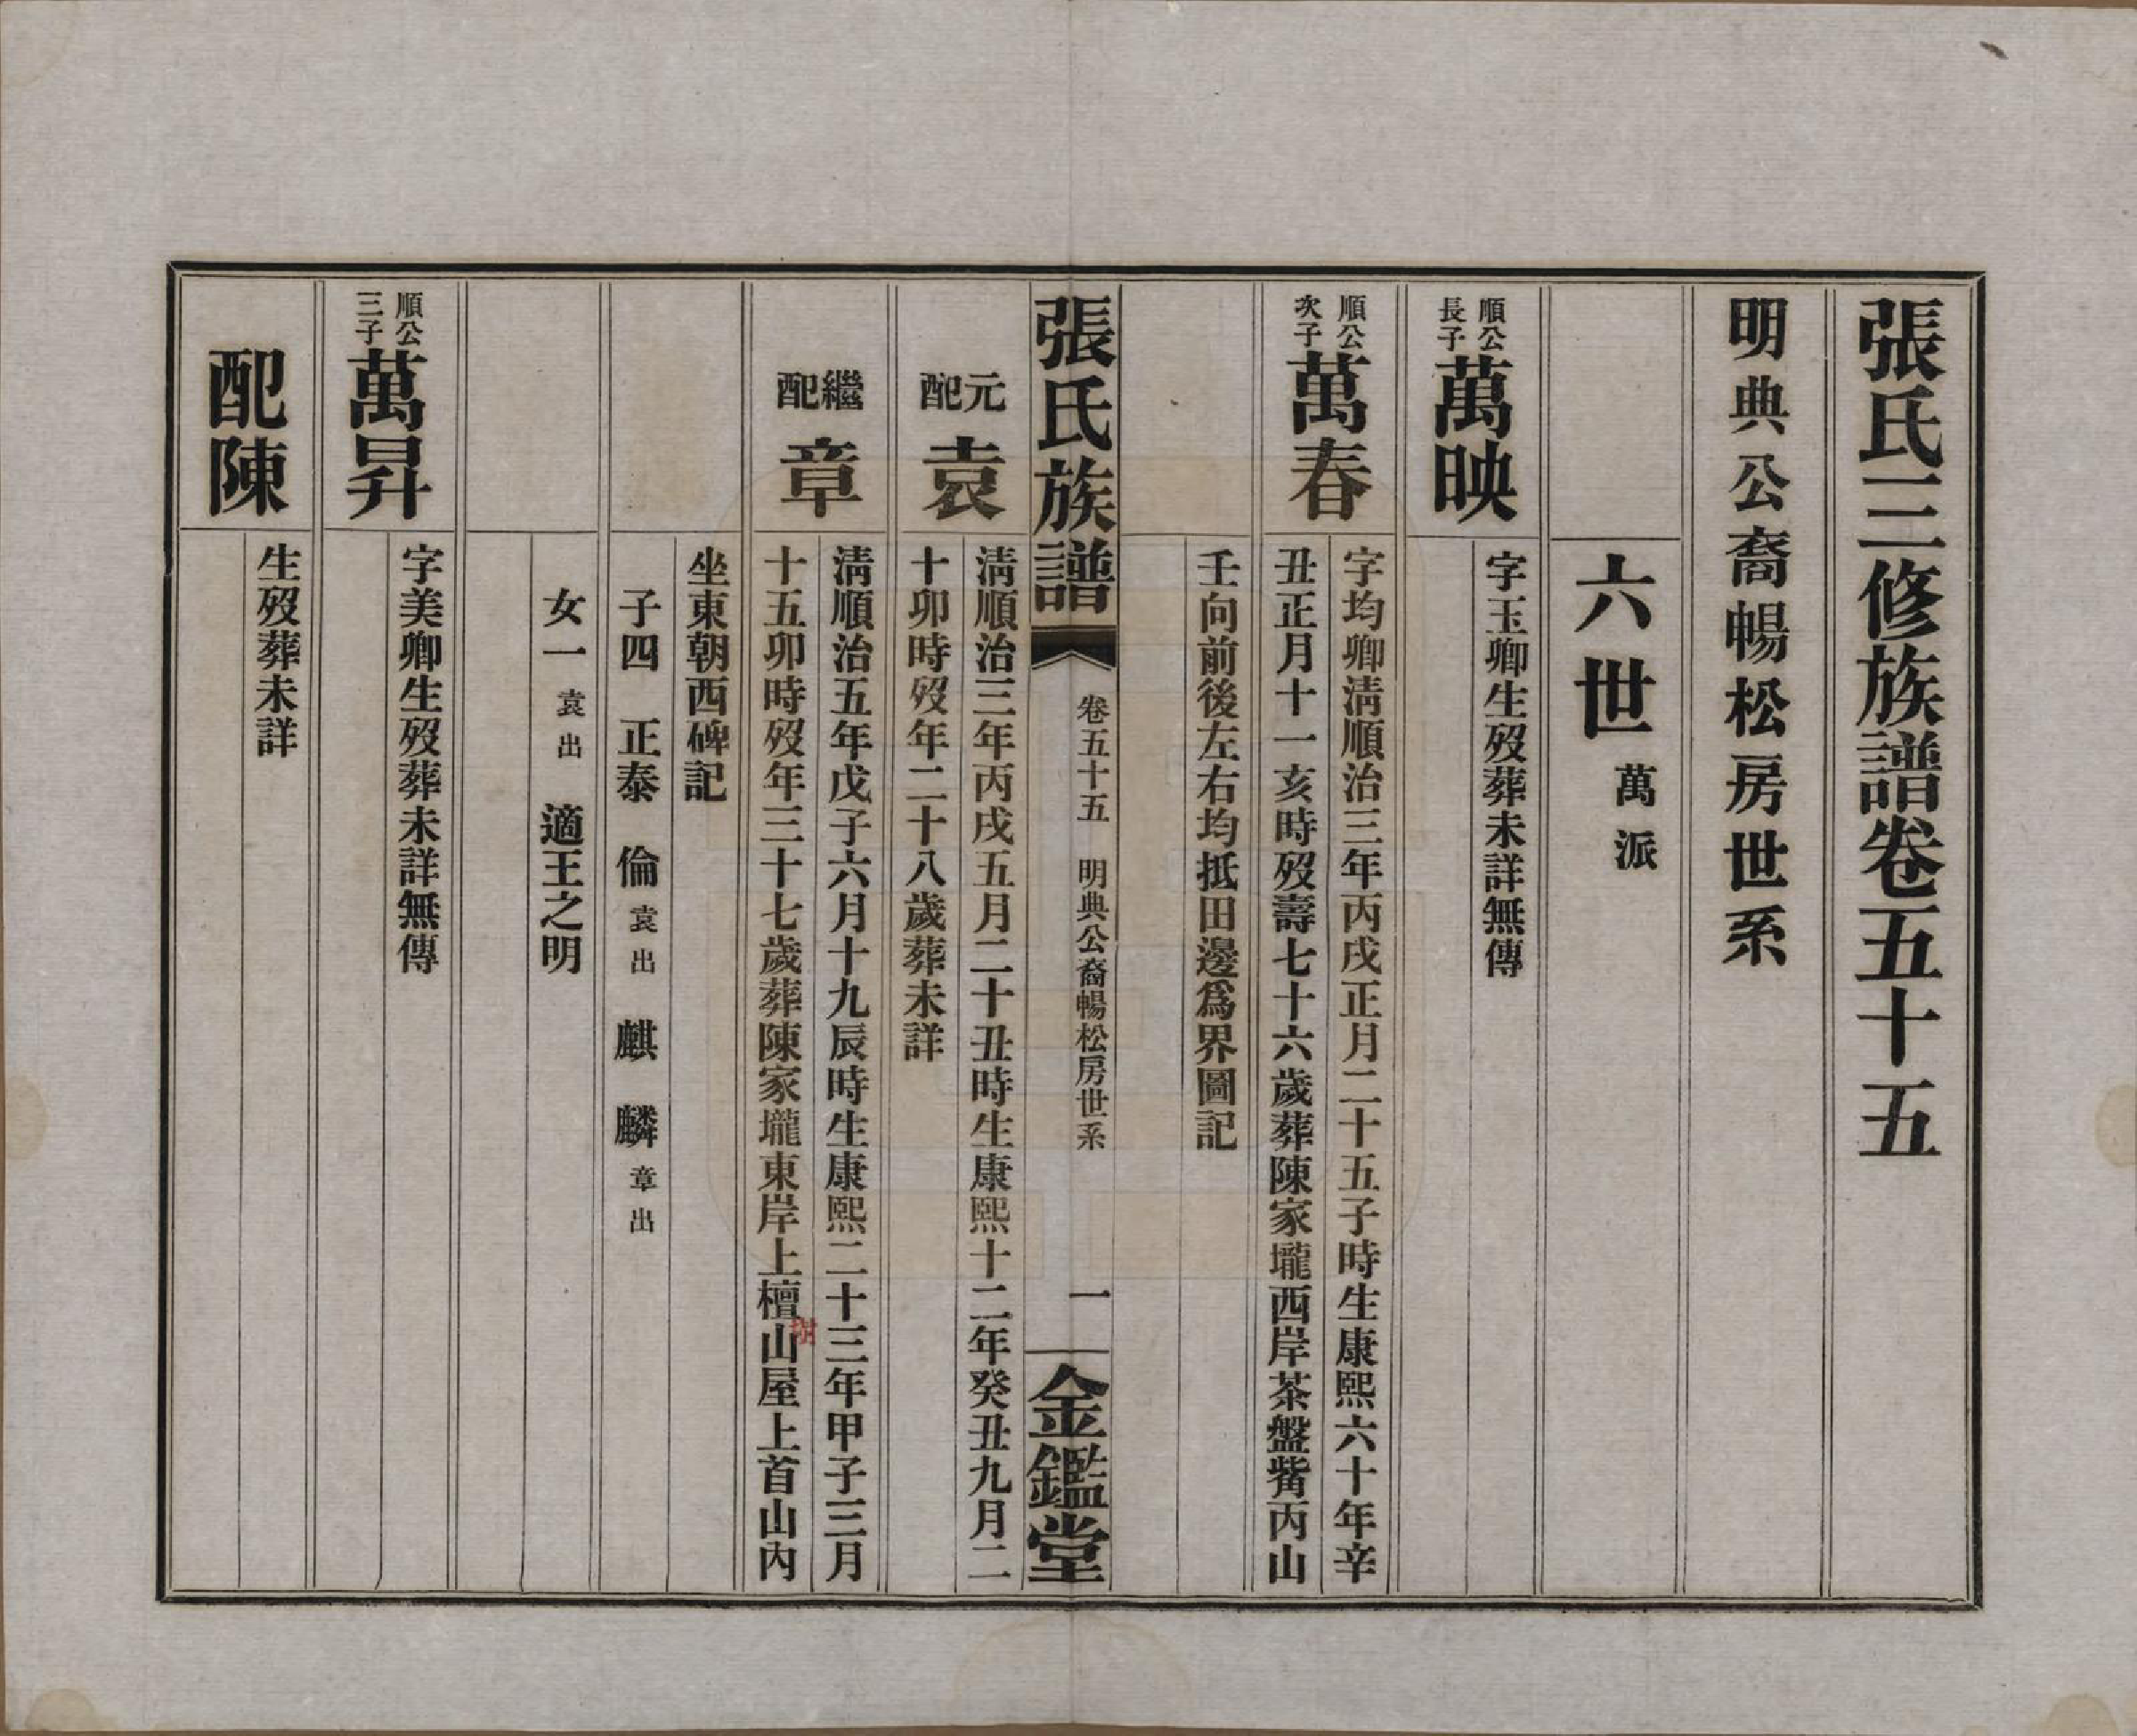 張氏三修族譜卷五十五
明典公裔暢松房世系
六世 萬派
順公長子 萬映
字玉卿生歿葬未詳無傳
順公次子 萬春
字均卿清順治三年丙戌正月二十五子時生康熙六十年辛
丑正月十一亥時歿壽七十六歲葬陳家壠西岸茶盤觜丙山
壬向前後左右均抵田邊爲界圖記
張氏族譜 卷五十五 明典公裔暢松房世系 一 金鑑堂
元配 袁
清順治三年丙戌五月二十丑時生康熙十二年癸丑九月二
十卯時歿年二十八歲葬未詳
繼配 章
清順治五年戊子六月十九辰時生康熙二十三年甲子三月
十五卯時歿年三十七歲葬陳家壠東岸上檀樹山屋上首山內
坐東朝西碑記
子四 正泰 倫 袁出 麒 麟 章出
女一 袁出 適王之明
順公三子 萬昇
字美卿生歿葬未詳無傳
配陳
生歿葬未詳